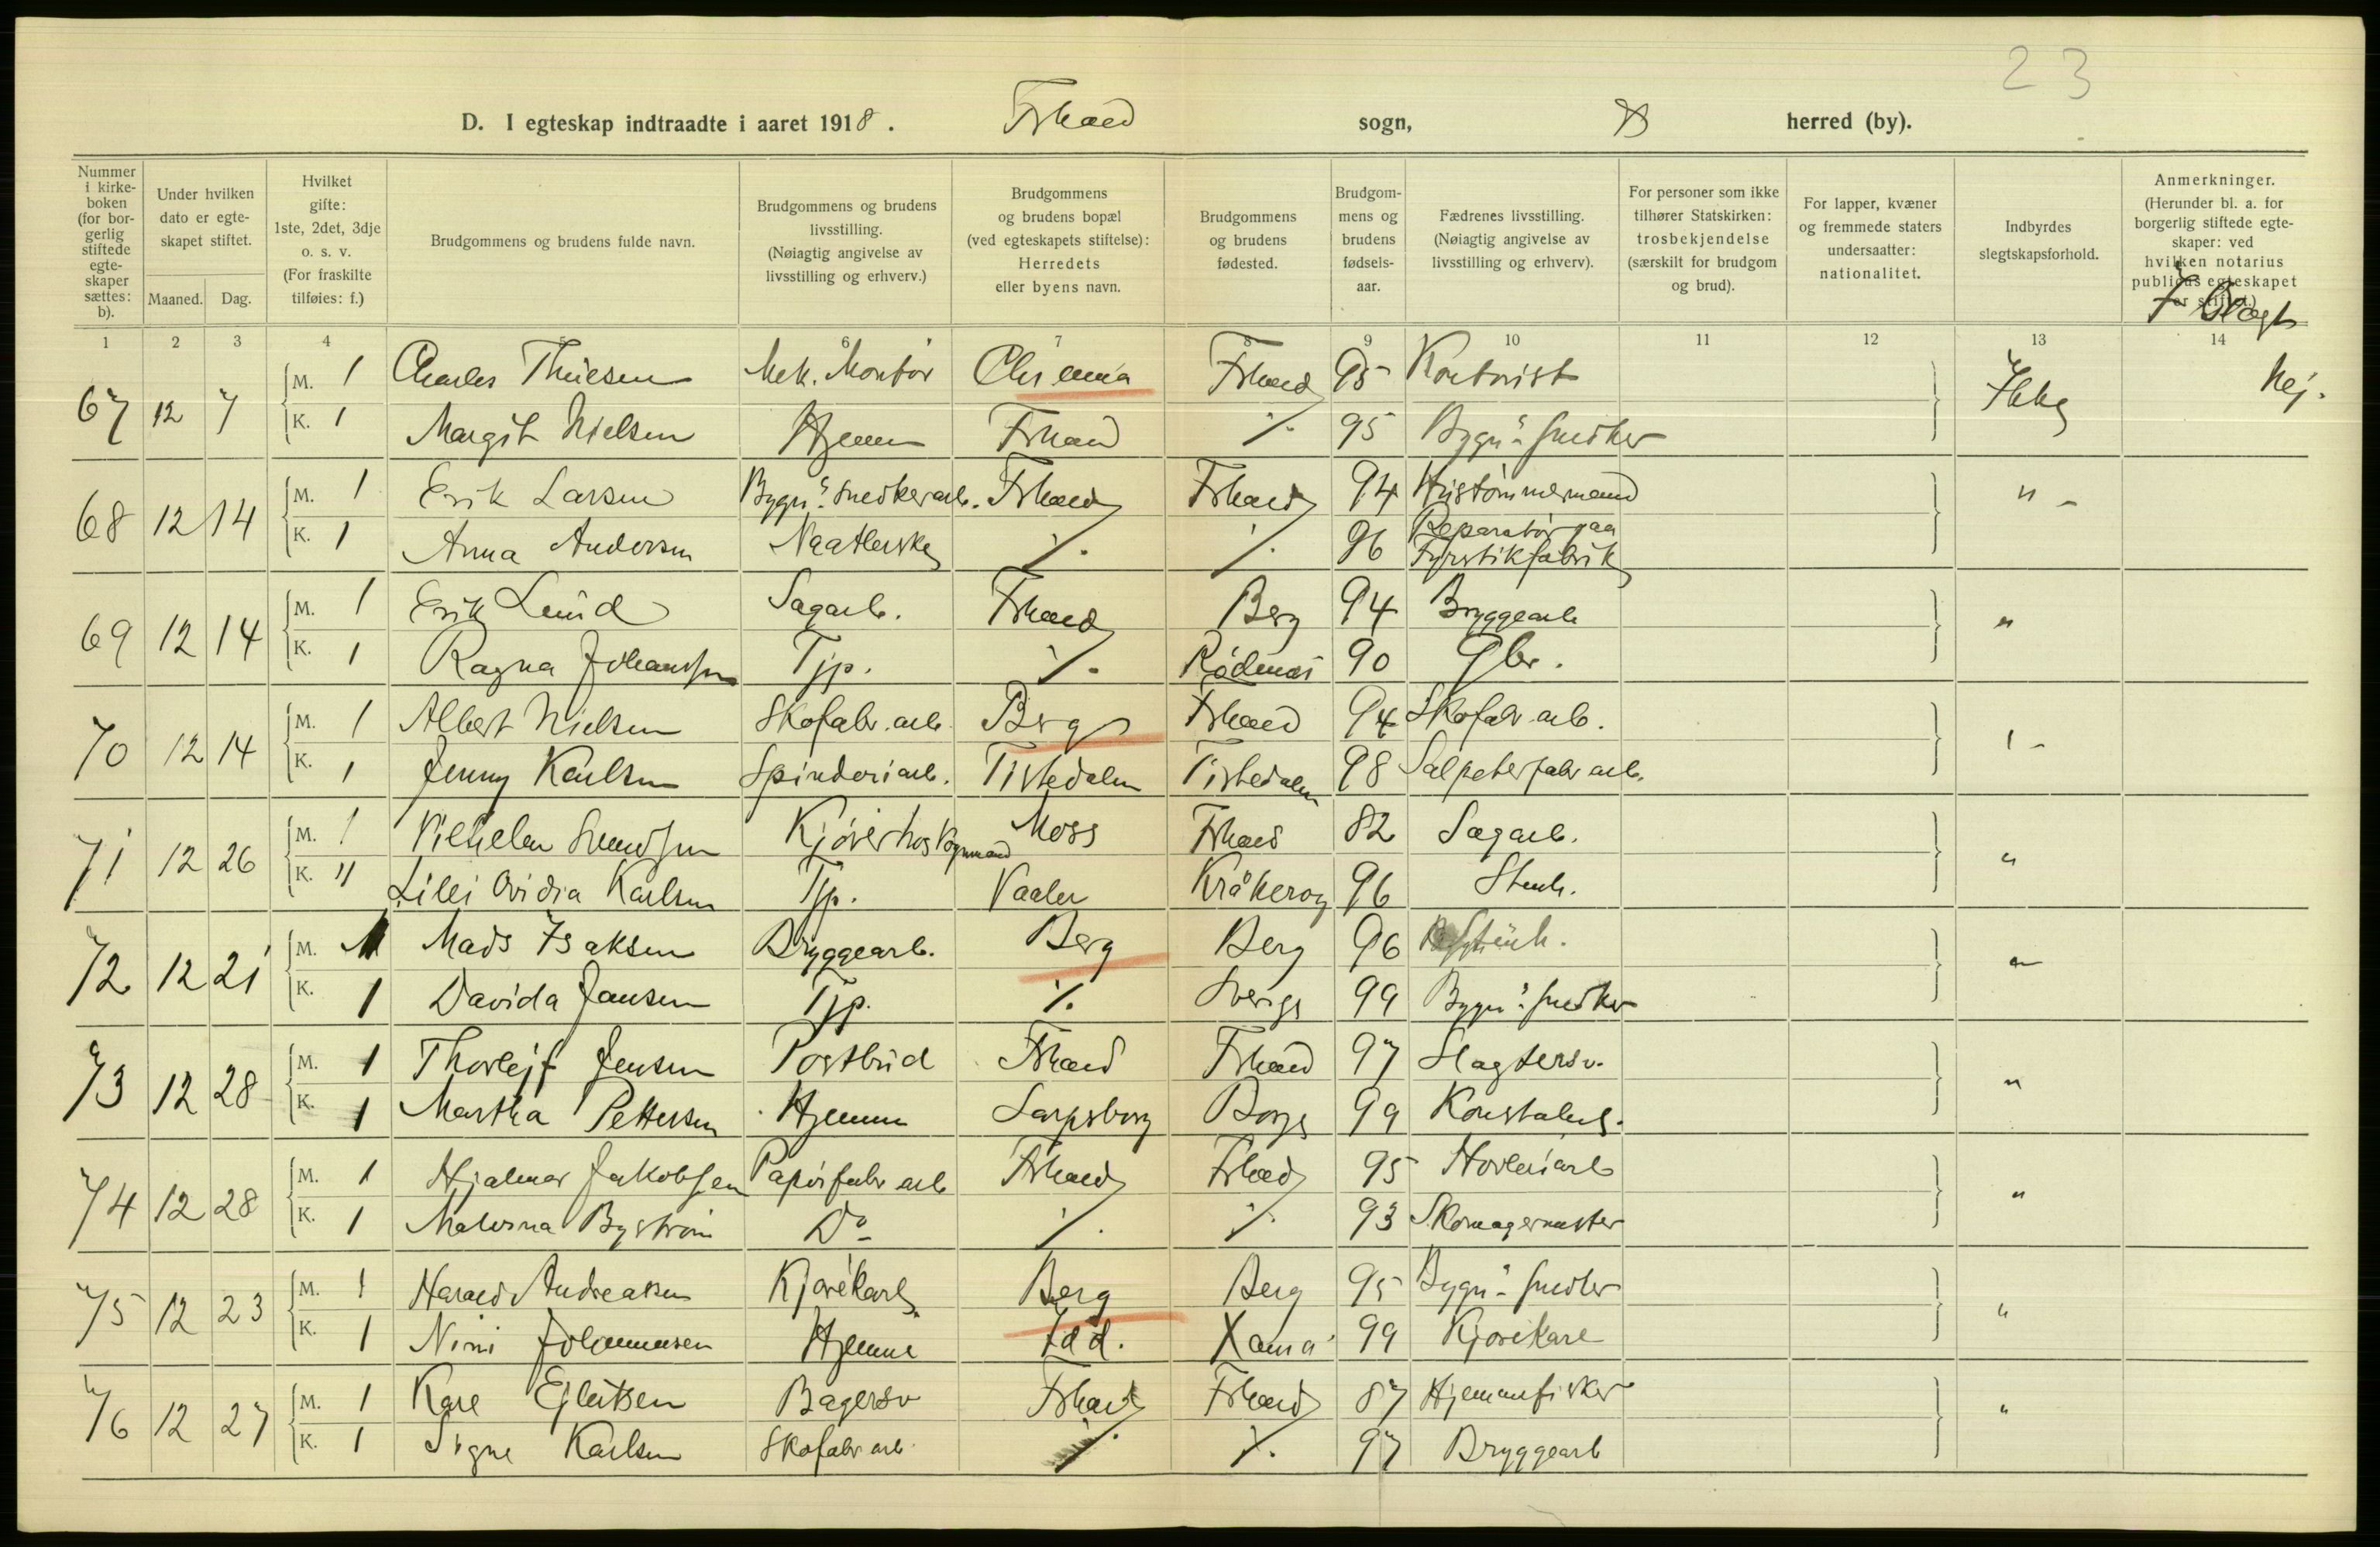 23
D. I egteskap indtraadte i aaret 1918. Frhald sogn, herred (by).
Nummer i kirkeboken (for borgerlig stiftede egteskaper sættes: b).
Under hvilken dato er egteskapet stiftet.
Maaned. Dag.
Hvilket gifte: 1ste, 2det, 3dje o. s. v. (For fraskilte tilføies: f.)
Brudgommens og brudens fulde navn.
Brudgommens og brudens livsstilling. (Nøiagtig angivelse av livsstilling og erhverv.)
Brudgommens og brudens bopæl (ved egteskapets stiftelse): Herredets eller byens navn.
Brudgommens og brudens fødested.
Brudgommens og brudens fødselsaar.
Fædrenes livsstilling. (Nøiagtig angivelse av livsstilling og erhverv).
For personer som ikke tilhører Statskirken: trosbekjendelse (særskilt for brudgom og brud).
For lapper, kvæner og fremmede staters undersaatter: nationalitet.
Indbyrdes slegtskapsforhold.
Anmerkninger. (Herunder bl. a. for borgerlig stiftede egteskaper: ved hvilken notarius publicus egteskapet er stiftet.)
1 2 3 4 5 6 7 8 9 10 11 12 13 14
67 12 7 M. 1 Charles Thiesen Mek. Montør Chr.ania Frhald 95 Kontorist Ikke Nej.
K. 1 Margit Nielsen Hjemme Frhald ./. 95 Bygn.s Snedker
68 12 14 M. 1 Erik Larsen Bygn.s Snedkerarb. Frhald Frhald 94 Hustømmermand " -
K. 1 Anna Andersen Naatlerske ./. ./. 96 Reparatør paa Fyrstikfabrik
69 12 14 M. 1 Erik Lund Sagarb. Frhald Berg 94 Bryggearb "
K. 1 Ragna Johanssen Tjp. ./. Rødenæs 90 Gbr.
70 12 14 M. 1 Albert Nielsen Skofabr. arb. Berg Frhald 94 Skofabr arb. " -
K. 1 Jenny Karlsen Spinderiarb. Tistedalen Tistedalen 98 Salpeterfabr arb.
71 12 26 M. 1 Vilhelm Svendsen Kjører hos Vognmand Moss Frhald 82 Sagarb. "
K. " Lilli Ovidia Karlsen Tjp. Vaaler Kråkerøy 96 Stenh.
72 12 21 M. 1 Mads Isaksen Bryggearb. Berg Berg 96 Stenh. "
K. 1 Davida Jansen Tjp. ./. Sverige 99 Bygn.s Snedker
73 12 28 M. 1 Thorlejf Jensen Postbud Frhald Frhald 97 Slagtersv. "
K. 1 Martha Pettersen Hjemme Sarpsborg Borge 99 Konstabel.
74 12 28 M. 1 Hjalmar Jakobsen Papirfabr arb Frhald Frhald 95 Høvleriarb "
K. 1 Byström Do ./. ./. 93 Skomagermester
75 12 23 M. 1 Harald Andreasen Kjørekarl Berg Berg 95 Bygn.s Snedker "
K. 1 Nini Johannesen Hjemme Idd. Xania 99 Kjørekarl
76 12 27 M. 1 Kare Ejlertsen Bagersv Frhald Frhald 87 Hjemmefisker "
K. 1 Signe Karlsen Skofabr arb ./. ./. 97 Bryggearb